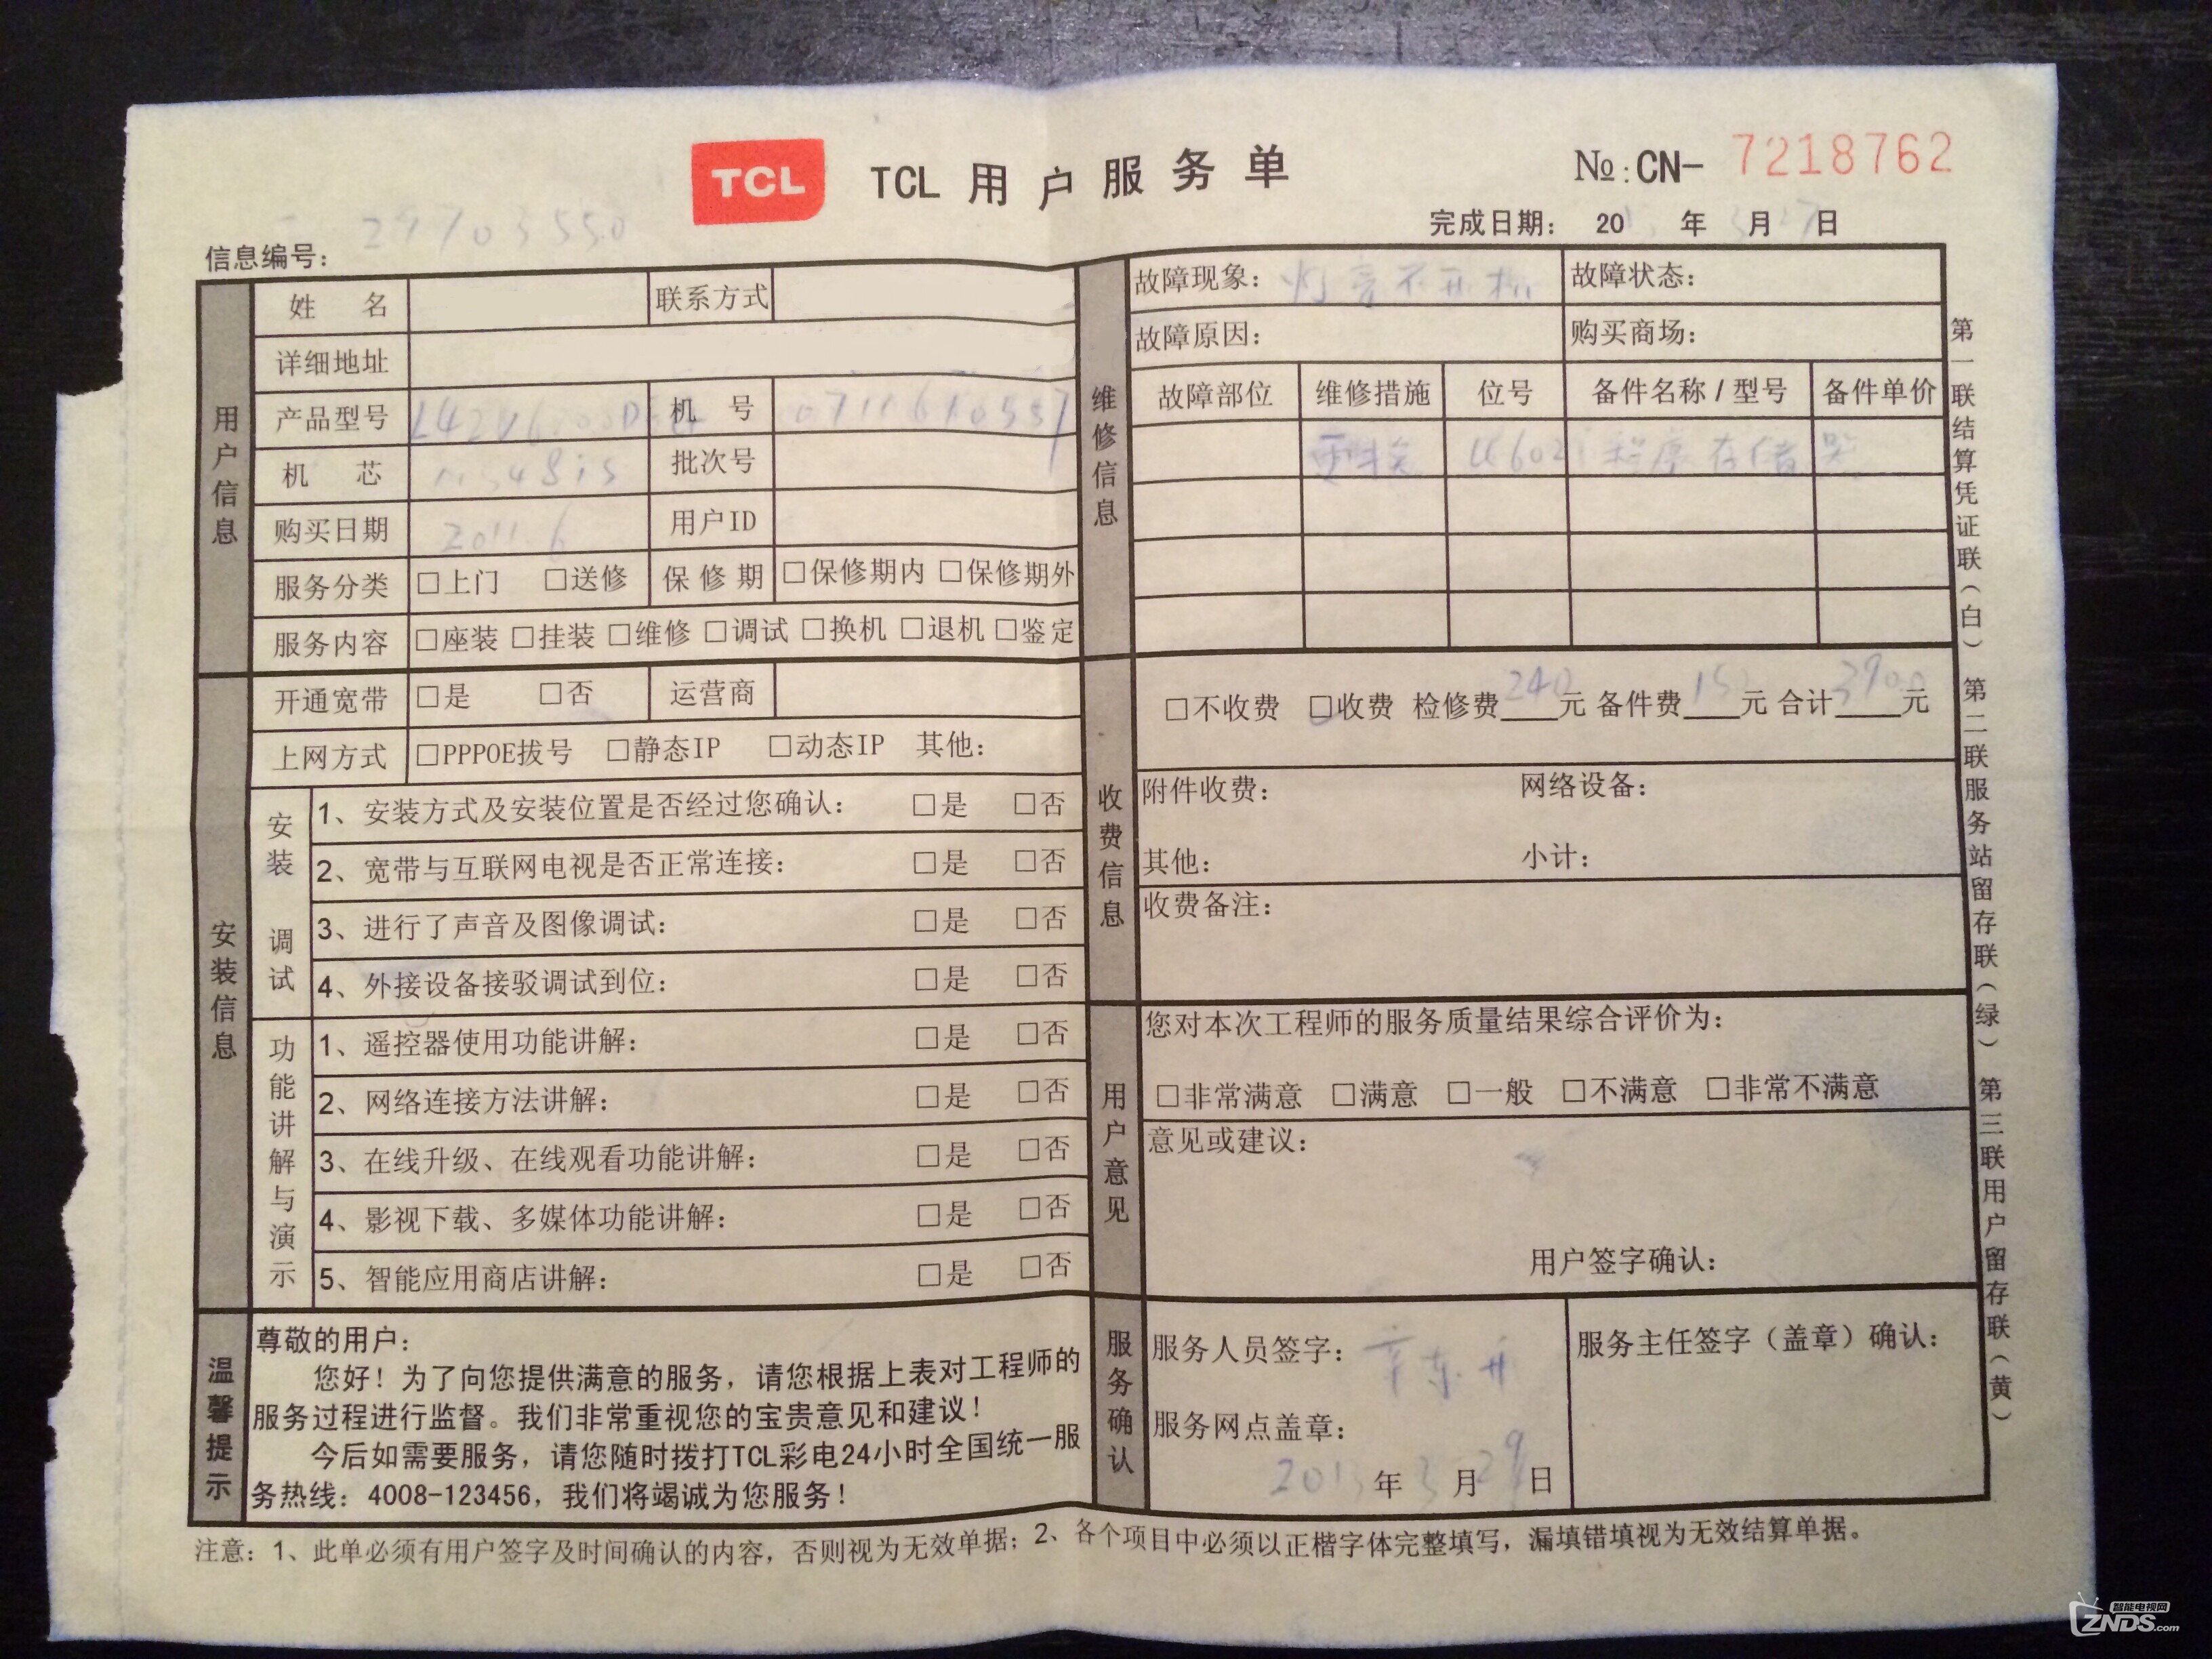 TCL TCL用户服务单 №:CN- 7218762
完成日期: 20 年 月 日
信息编号: 29703550
用户信息
姓 名 联系方式
详细地址
产品型号 机 号
机 芯 批次号
购买日期 2011.6 用户ID
服务分类 □上门 □送修 保修期 □保修期内 □保修期外
服务内容 □座装 □挂装 □维修 □调试 □换机 □退机 □鉴定
安装信息
开通宽带 □是 □否 运营商
上网方式 □PPPOE拔号 □静态IP □动态IP 其他:
安装 调试
1、安装方式及安装位置是否经过您确认: □是 □否
2、宽带与互联网电视是否正常连接: □是 □否
3、进行了声音及图像调试: □是 □否
4、外接设备接驳调试到位: □是 □否
功能讲解与演示
1、遥控器使用功能讲解: □是 □否
2、网络连接方法讲解: □是 □否
3、在线升级、在线观看功能讲解: □是 □否
4、影视下载、多媒体功能讲解: □是 □否
5、智能应用商店讲解: □是 □否
温馨提示
尊敬的用户:
您好!为了向您提供满意的服务,请您根据上表对工程师的
服务过程进行监督。我们非常重视您的宝贵意见和建议!
今后如需要服务,请您随时拨打TCL彩电24小时全国统一服
务热线:4008-123456,我们将竭诚为您服务!
维修信息
故障现象: 灯亮不开机 故障状态:
故障原因: 购买商场:
故障部位 维修措施 位号 备件名称/型号 备件单价
程序存储器
收费信息
□不收费 □收费 检修费240元 备件费元 合计元
附件收费: 网络设备:
其他: 小计:
收费备注:
用户意见
您对本次工程师的服务质量结果综合评价为:
□非常满意 □满意 □一般 □不满意 □非常不满意
意见或建议:
用户签字确认:
服务确认
服务人员签字: 服务主任签字(盖章)确认:
服务网点盖章:
2013年3月29日
第一联结算凭证联(白) 第二联服务站留存联(绿) 第三联用户留存联(黄)
注意:1、此单必须有用户签字及时间确认的内容,否则视为无效单据;2、各个项目中必须以正楷字体完整填写,漏填错填视为无效结算单据。
智能电视网
ZNDS.com